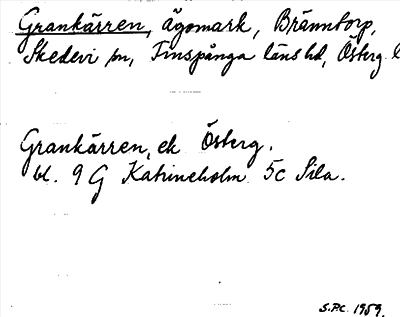 Grankärren, ägomark, Bränntorp,
Skedevi sn, Finspånga läns hd, Österg. l
Grankärren, ek Österg.
bl. 9 G Katrineholm 5c Sila.
S.P.C. 1959.